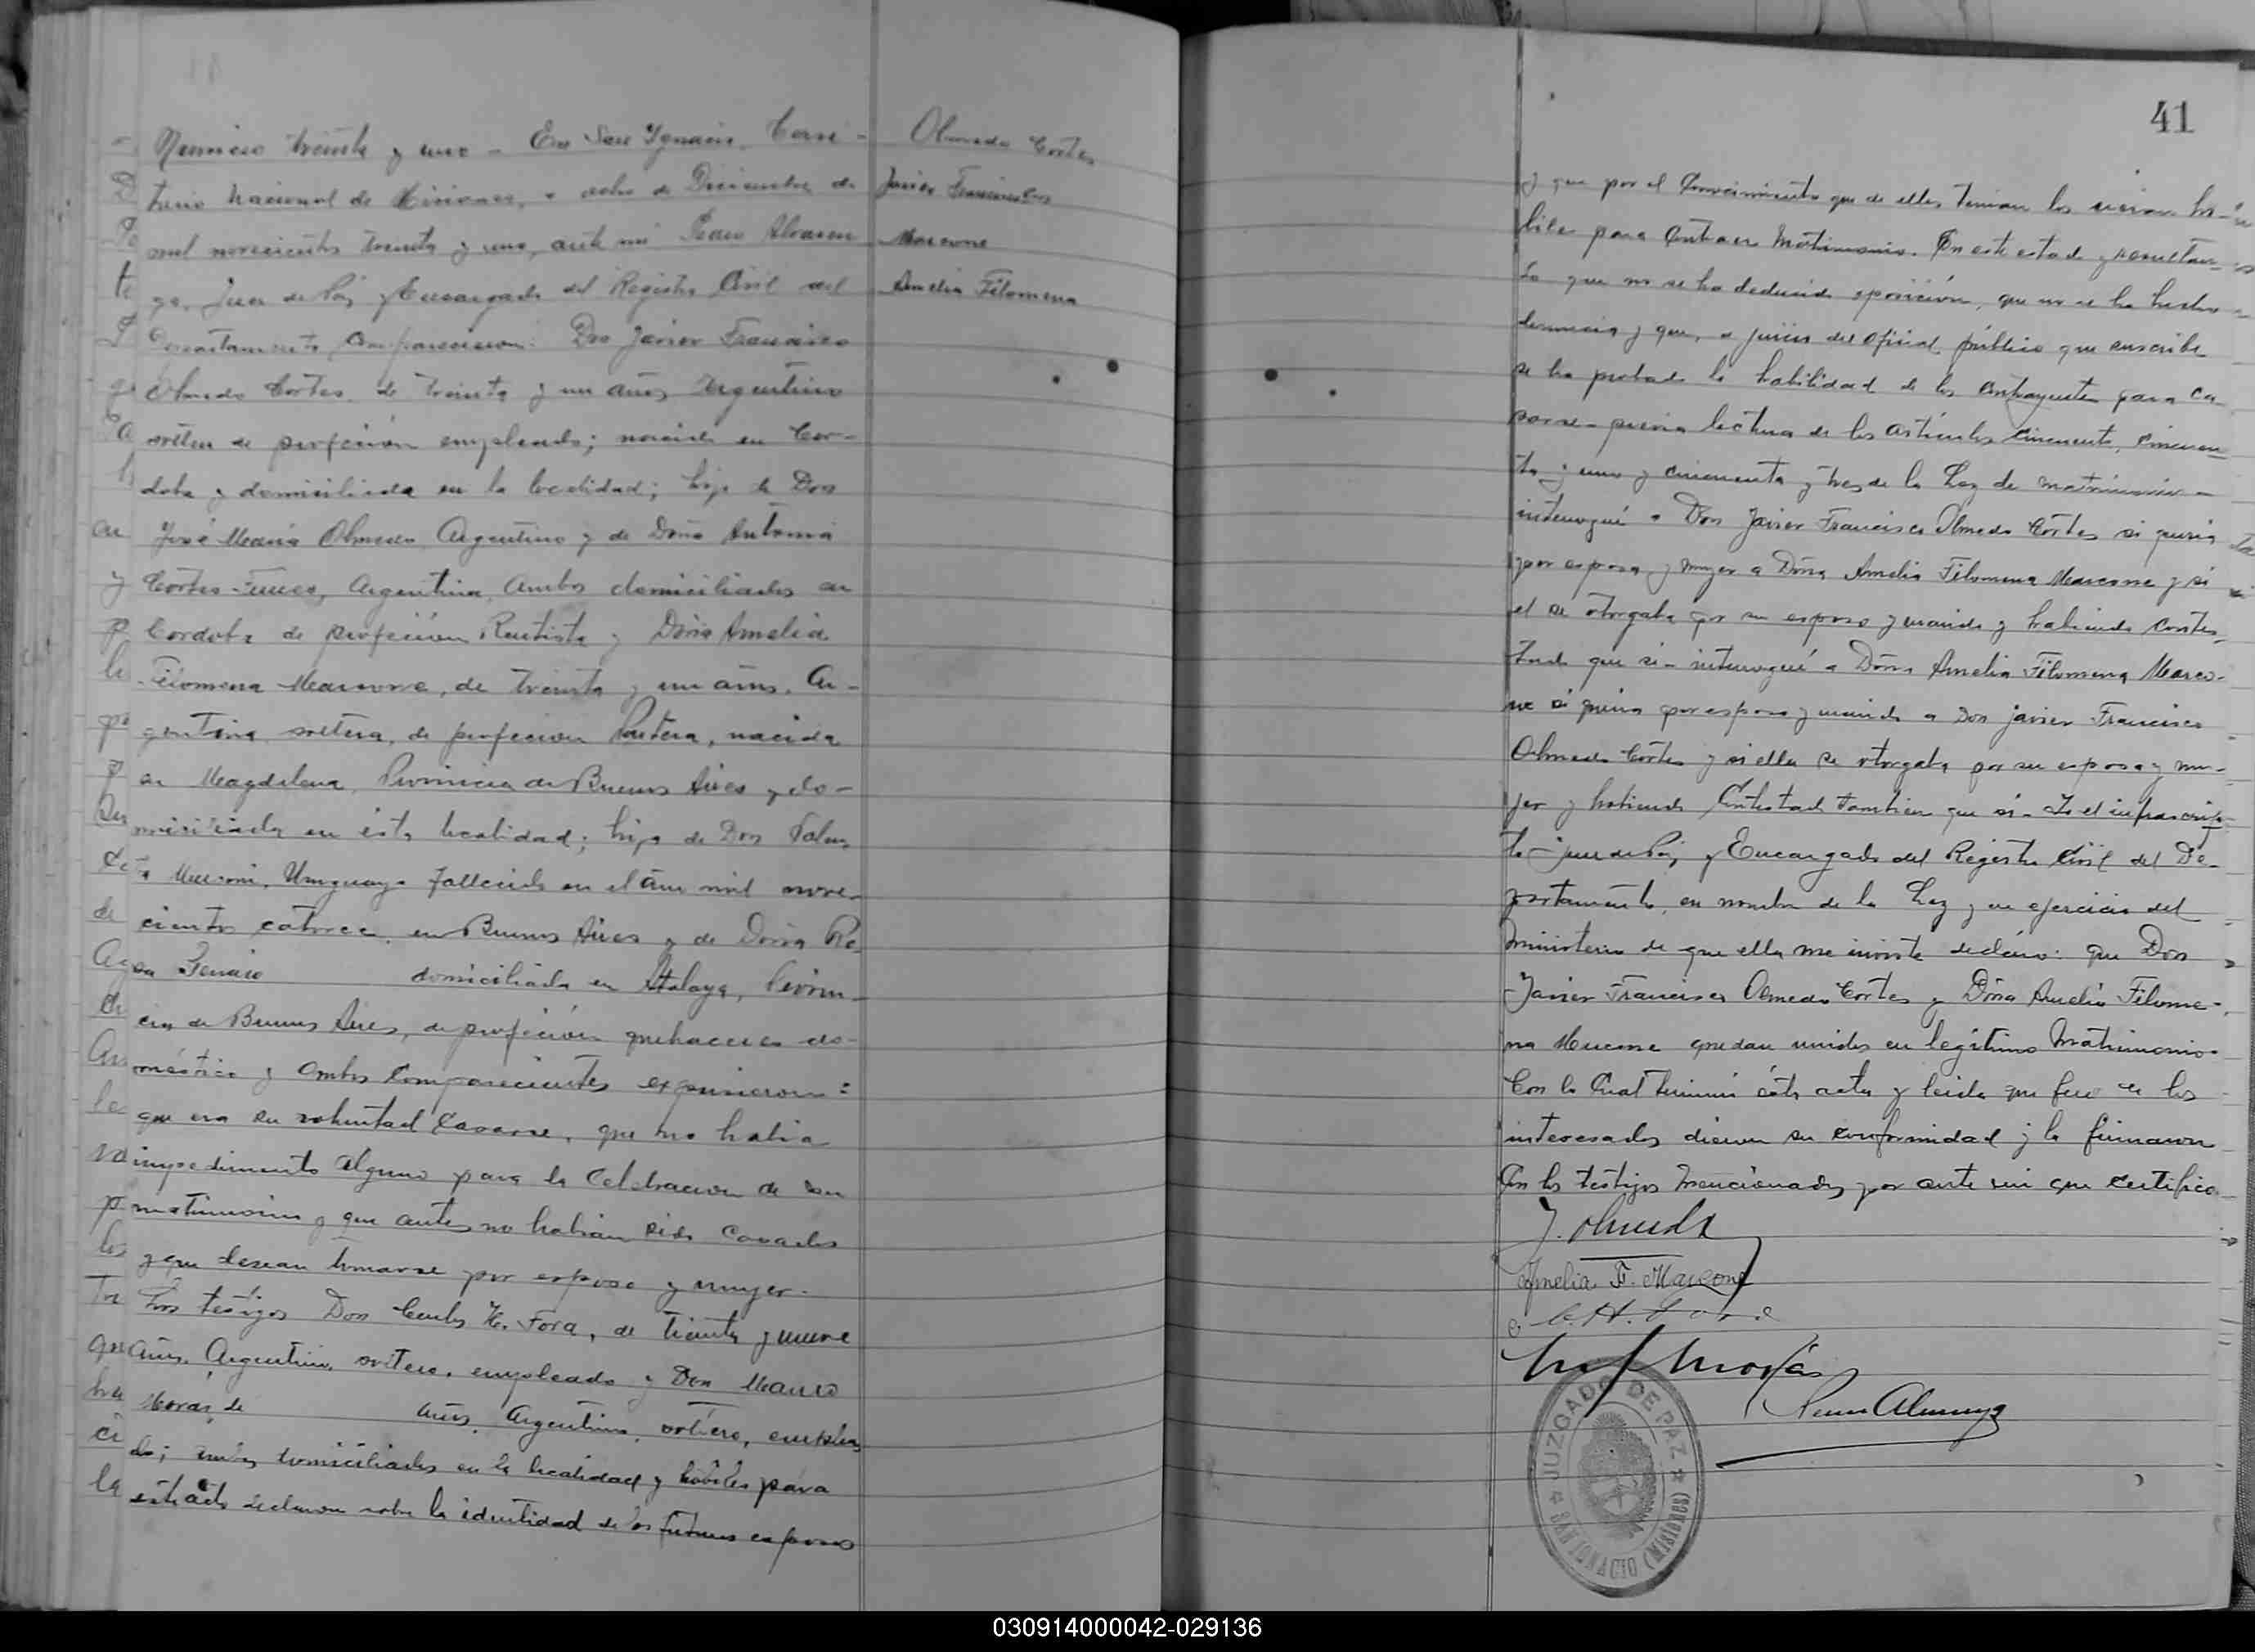 Número treinta y uno - En San Ignacio, Terri-
torio Nacional de Misiones, a ocho de Diciembre de
mil novecientos treinta y uno, ante mi
Juez de Paz y Encargado del Registro Civil del
Departamento Comparecieron: Don Javier Francisco
Olmedo Cortes, de treinta y un años Argentino
soltero de profeción empleado; nacido en Cor-
doba y domiciliado en la localidad; hijo de Don
José Maria Olmedo, Argentino y de Doña Antonia
Cortes Funes, Argentina, ambos domiciliados en
Cordoba de profeción Rentista y Doña Amelia
Filomena Marcone, de treinta y un años, Ar-
gentina soltera, de profecion Partera, nacida
en Magdalena, Provincia de Buenos Aires y do-
miciliada en ésta localidad; hija de Don
Uruguayo fallecido en el año mil nove-
cientos catorce, en Buenos Aires y de Doña Ro-
sa domiciliada en Atalaya, Provin-
cia de Buenos Aires, de profeción quehaceres do-
mésticos y ambos Comparecientes expusieron:
que era su voluntad Casarse, que no habia
impedimento alguno para la Celebracion de su
matrimonio y que antes no habian sido Casados
y que desean tomarse por esposo y mujer.
Los testigos Don Carlos H. Fora, de treinta y nueve
años, Argentino, soltero, empleado y Don Mauro
Morás, de años, Argentino, soltero, emplea-
do; ambos domiciliados en la localidad y hábiles para
este acto declararon sobre la identidad de los futuros esposos
Olmedo Cortes
Javier Francisco
Marcone
Amelia Filomena
41
y que por el Conocimiento que de ellos tenian los creian há-
biles para Contraer Matrimonio. En este estado y resultan-
do que no se ha deducido oposición, que no se ha hecho
denuncia y que, a juicio del oficial público que suscribe
se ha probado la habilidad de los Contrayentes para ca-
sarse - previa lectura de los artículos Cincuenta, Cincuen-
ta y uno y cincuenta y tres de la Ley de matrimonio -
interrogué a Don Javier Francisco Olmedo Cortes si queria
por esposa y mujer a Doña Amelia Filomena Marcone y si
el se otorgaba por su esposo y marido y habiendo Contes-
tado que si - interrogué a Doña Amelia Filomena Marco-
ne si queria por esposo y marido a Don Javier Francisco
Olmedo Cortes y si ella se otorgaba por su esposa y mu-
jer y habiendo Contestado tambien que si - Yo el infrascrip-
to Juez de Paz y Encargado del Registro Civil del De-
partamento, en nombre de la Ley y en ejercicio del
Ministerio de que ella me inviste declaro: que Don
Javier Francisco Olmedo Cortes y Doña Amelia Filome-
na Marcone quedan unidos en legítimo Matrimonio.
Con lo Cual terminó ésta acta y leida que fue a los
interesados dieron su conformidad y la firmaron
Con los testigos Mencionados por ante mi que Certifico
J. Olmedo
Amelia F. Marcone
C. H. Fora
Morás
JUZGADO DE PAZ
SAN IGNACIO (MISIONES)
030914000042-029136